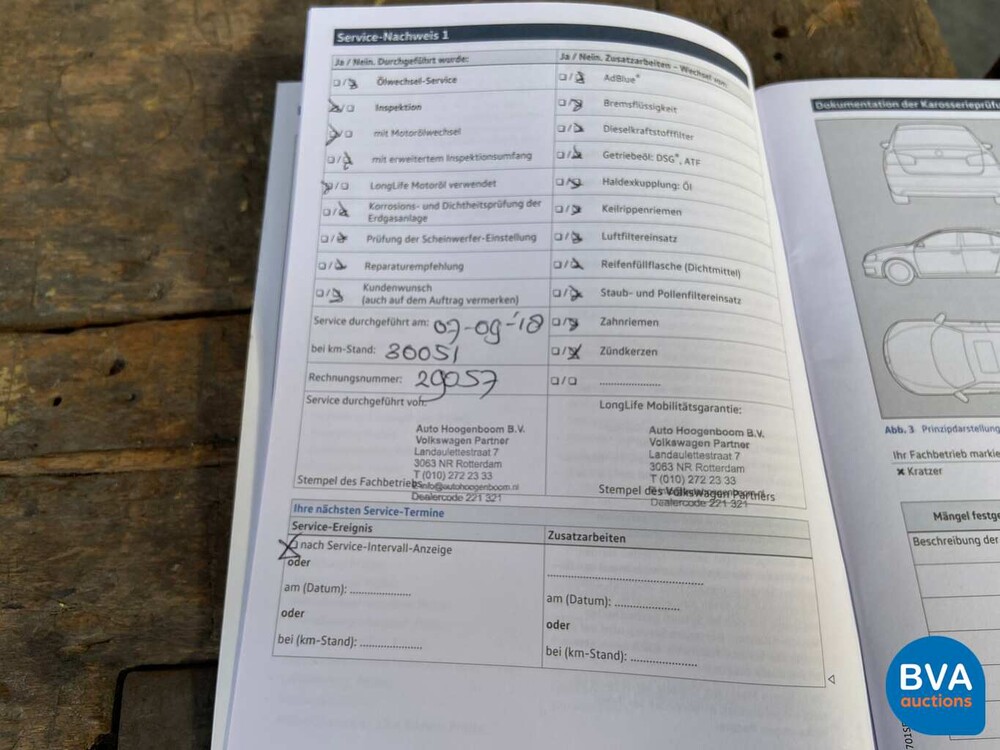 Service-Nachweis 1
Ja / Nein. Durchgeführt wurde:
Ölwechsel-Service
Inspektion
mit Motorölwechsel
mit erweitertem Inspektionsumfang
LongLife Motoröl verwendet
Korrosions- und Dichtheitsprüfung der
Erdgasanlage
Prüfung der Scheinwerfer-Einstellung
Reparaturempfehlung
Kundenwunsch
(auch auf dem Auftrag vermerken)
Service durchgeführt am: 07-09-'18
bei km-Stand: 30051
Rechnungsnummer: 29057
Service durchgeführt von:
Auto Hoogenboom B.V.
Volkswagen Partner
Landaulettestraat 7
3063 NR Rotterdam
T (010) 272 23 33
info@autohoogenboom.nl
Stempel des Fachbetriebs
Dealercode 221 321
Ja / Nein. Zusatzarbeiten – Wechsel von:
AdBlue®
Bremsflüssigkeit
Dieselkraftstofffilter
Getriebeöl: DSG®, ATF
Haldexkupplung: Öl
Keilrippenriemen
Luftfiltereinsatz
Reifenfüllflasche (Dichtmittel)
Staub- und Pollenfiltereinsatz
Zahnriemen
Zündkerzen
....................
LongLife Mobilitätsgarantie:
Auto Hoogenboom B.V.
Volkswagen Partner
Landaulettestraat 7
3063 NR Rotterdam
T (010) 272 23 33
Stempel des Volkswagen Partners
Dealercode 221 321
Ihre nächsten Service-Termine
Service-Ereignis
nach Service-Intervall-Anzeige
oder
am (Datum): ....................
oder
bei (km-Stand): ....................
Zusatzarbeiten
..................................................
am (Datum): ....................
oder
bei (km-Stand): ....................
Dokumentation der Karosserieprüf
Abb. 3 Prinzipdarstellung
Ihr Fachbetrieb markie
× Kratzer
Mängel festge
Beschreibung der
BVA
auctions